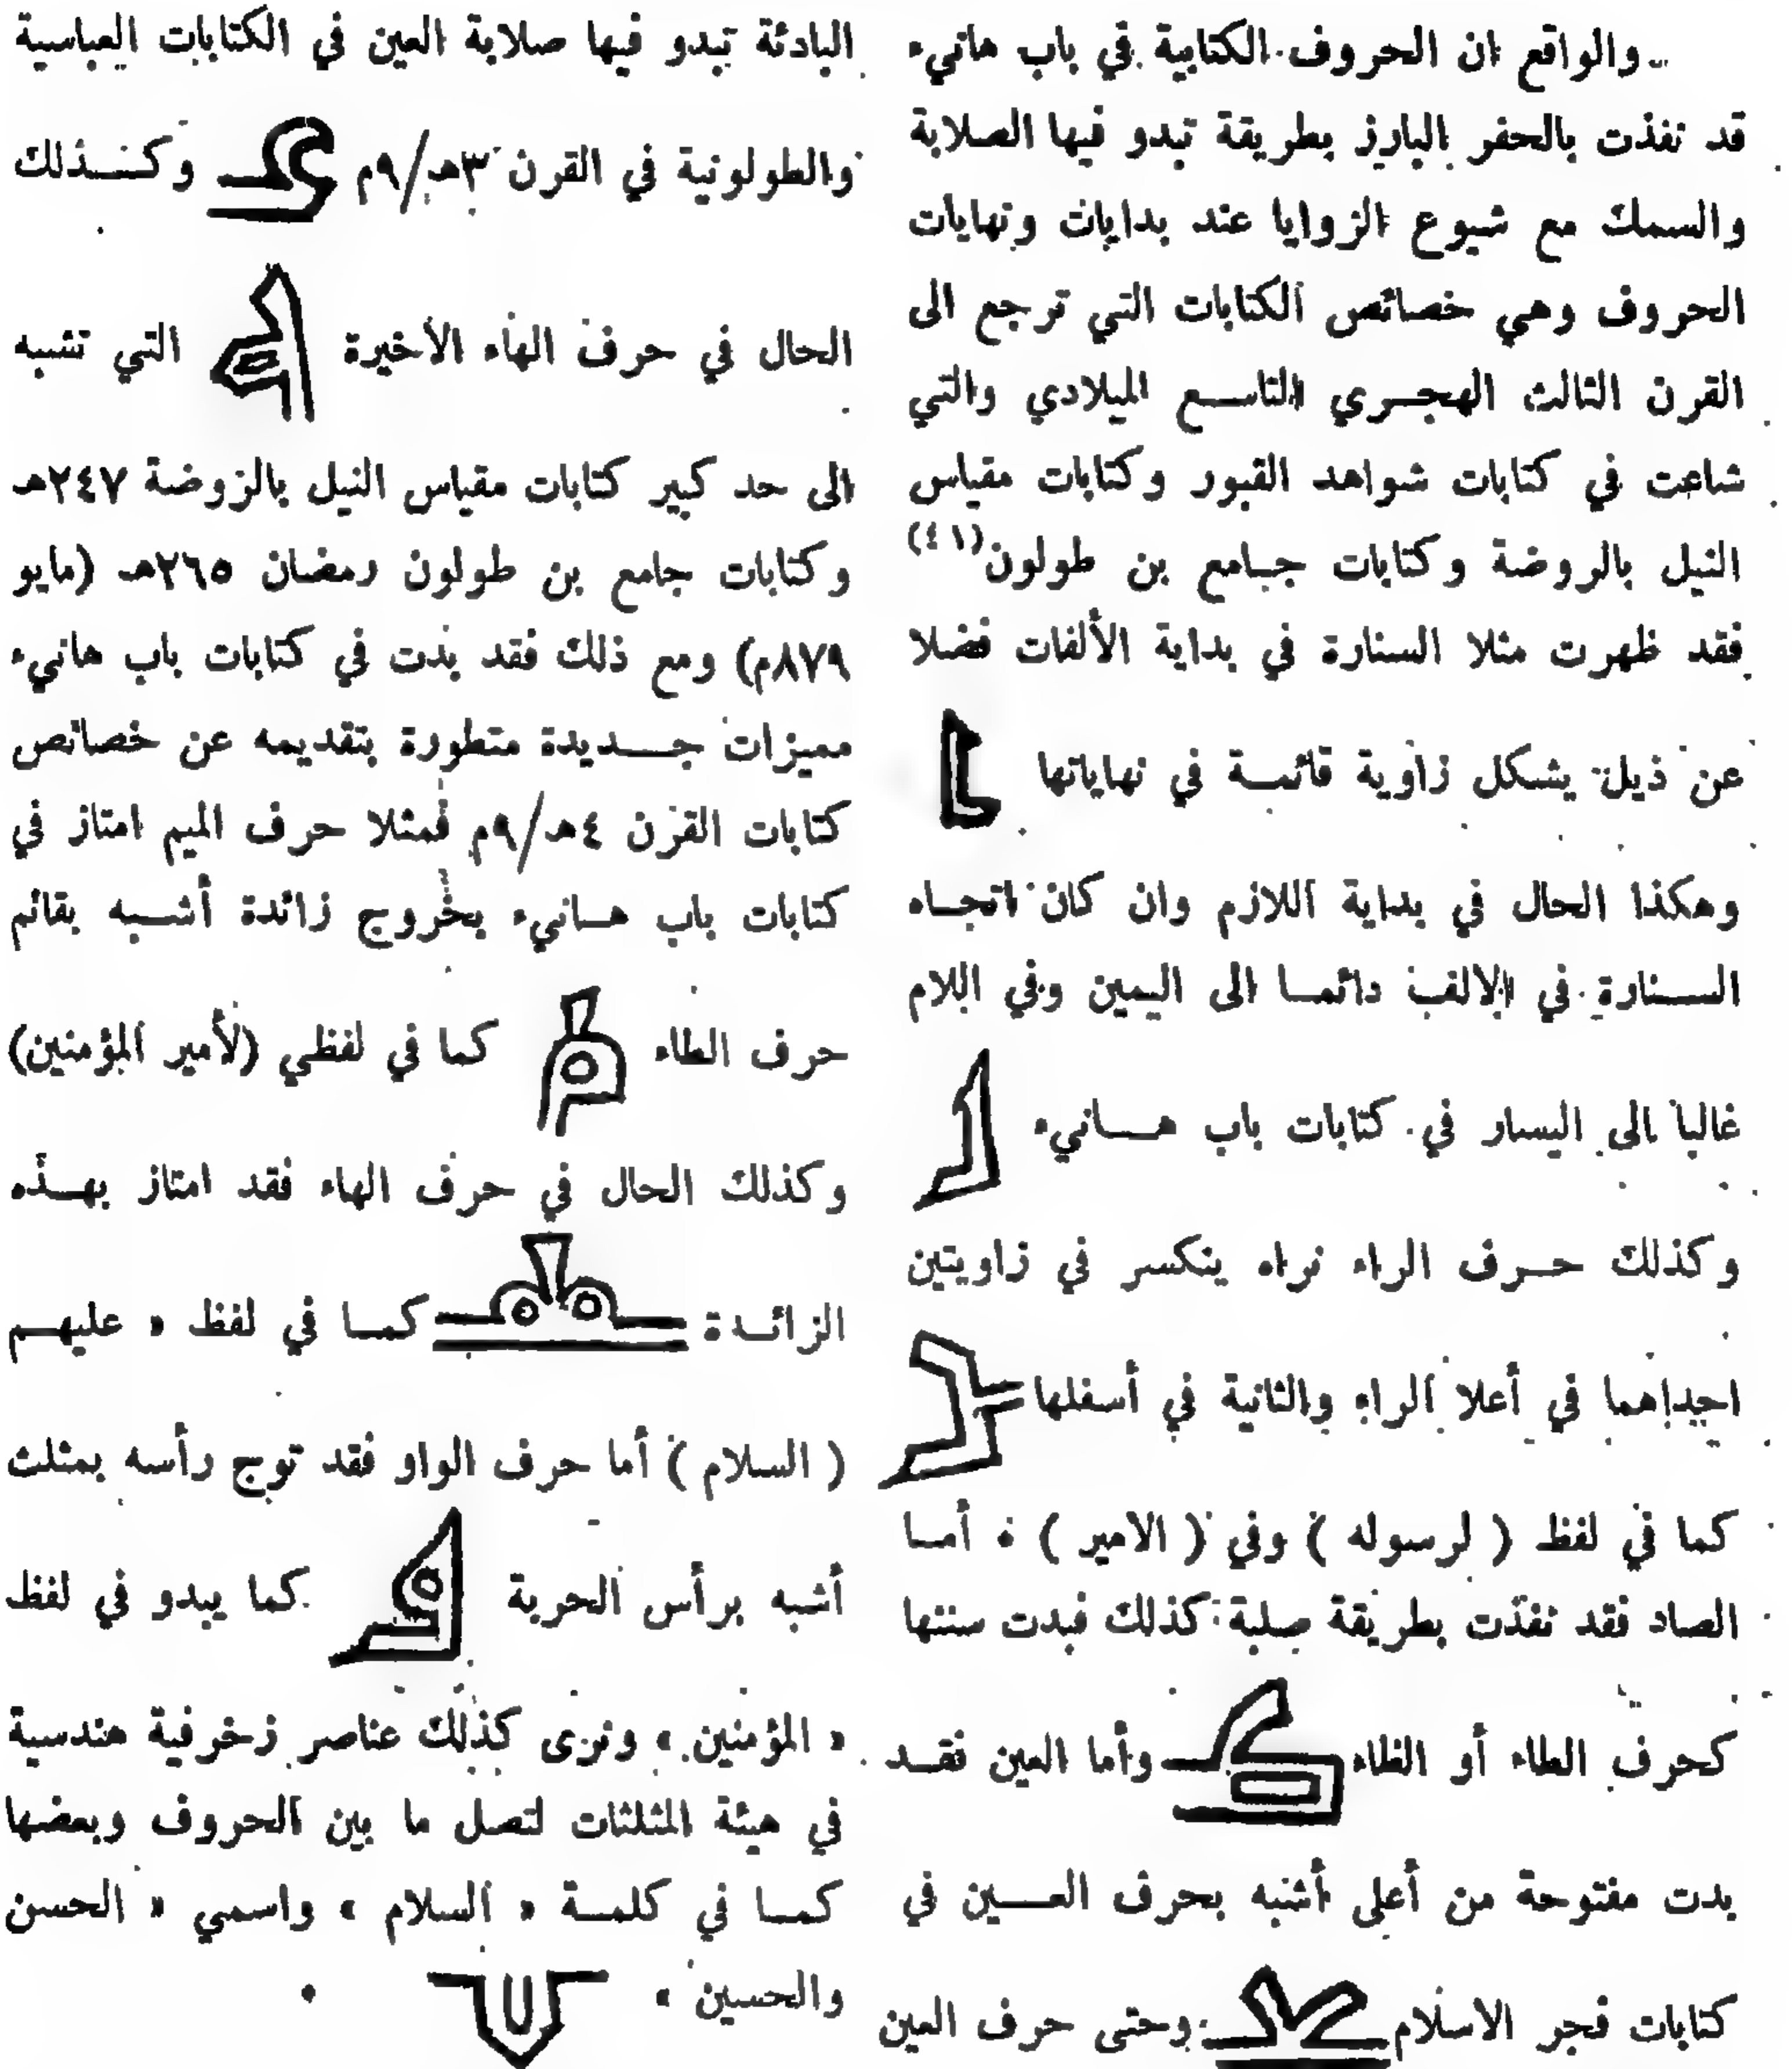 والواقع ان الحروف الكتابية في باب هانيء
قد نفذت بالحفر البارز بطريقة تبدو فيها الصلابة
والسمك مع شيوع الزوايا عند بدايات ونهايات
الحروف وهي خصائص الكتابات التي ترجع الى
القرن الثالث الهجري التاسع الميلادي والتي
شاعت في كتابات شواهد القبور وكتابات مقياس
النيل بالروضة وكتابات جامع بن طولون(٤١)
فقد ظهرت مثلا السنارة في بداية الألفات فضلا
عن ذيل يشكل زاوية قائمة في نهاياتها
وهكذا الحال في بداية اللازم وان كان اتجاه
السنارة في الالف دائما الى اليمين وفي اللام
غالبا الى اليسار في كتابات باب هانيء
وكذلك حرف الراء نراه ينكسر في زاويتين
احداهما في أعلا الراء والثانية في أسفلها
كما في لفظ ( لرسوله ) وفي ( الامير ) ، أما
الصاد فقد نفذت بطريقة صلبة كذلك فبدت سنتها
كحرف الطاء أو الظاء وأما العين فقد
بدت مفتوحة من أعلى أشبه بحرف العين في
كتابات فجر الاسلام وحتى حرف العين
البادئة تبدو فيها صلابة العين في الكتابات العباسية
والطولونية في القرن ٣هـ/٩م وكذلك
الحال في حرف الهاء الأخيرة التي تشبه
الى حد كبير كتابات مقياس النيل بالروضة ٢٤٧هـ
وكتابات جامع بن طولون رمضان ٢٦٥هـ (مايو
٨٧٩م) ومع ذلك فقد بدت في كتابات باب هانيء
مميزات جديدة متطورة بتقديمه عن خصائص
كتابات القرن ٤هـ/٩م فمثلا حرف الميم امتاز في
كتابات باب هانيء بخروج زائدة أشبه بقائم
حرف الطاء كما في لفظي (لأمير المؤمنين)
وكذلك الحال في حرف الهاء فقد امتاز بهذه
الزائدة كما في لفظ « عليهم
( السلام ) أما حرف الواو فقد توج رأسه بمثلث
أشبه برأس الحربة كما يبدو في لفظ
« المؤمنين » ونرى كذلك عناصر زخرفية هندسية
في هيئة المثلثات لتصل ما بين الحروف وبعضها
كما في كلمة « السلام » واسمي « الحسن
والحسين » .